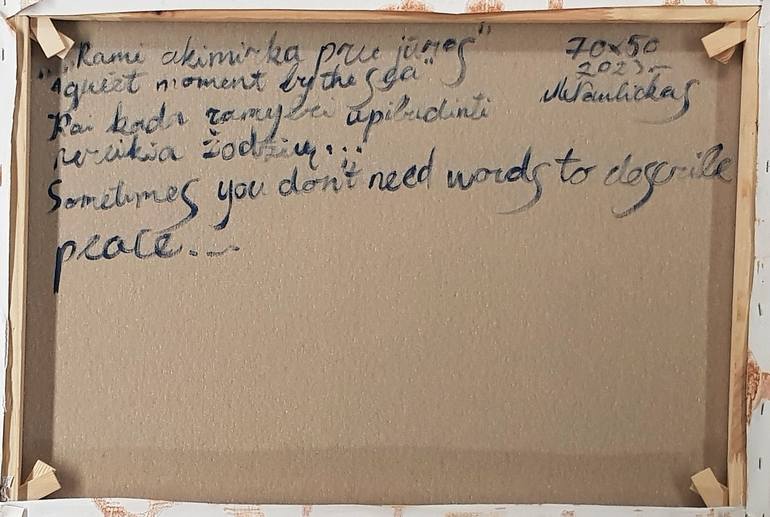 „Rami akimirka prie jūros"
"A quiet moment by the sea"
Kai kada ramybei apibūdinti
nereikia žodžių...
Sometimes you don't need words to describe
peace...
70x50
2023